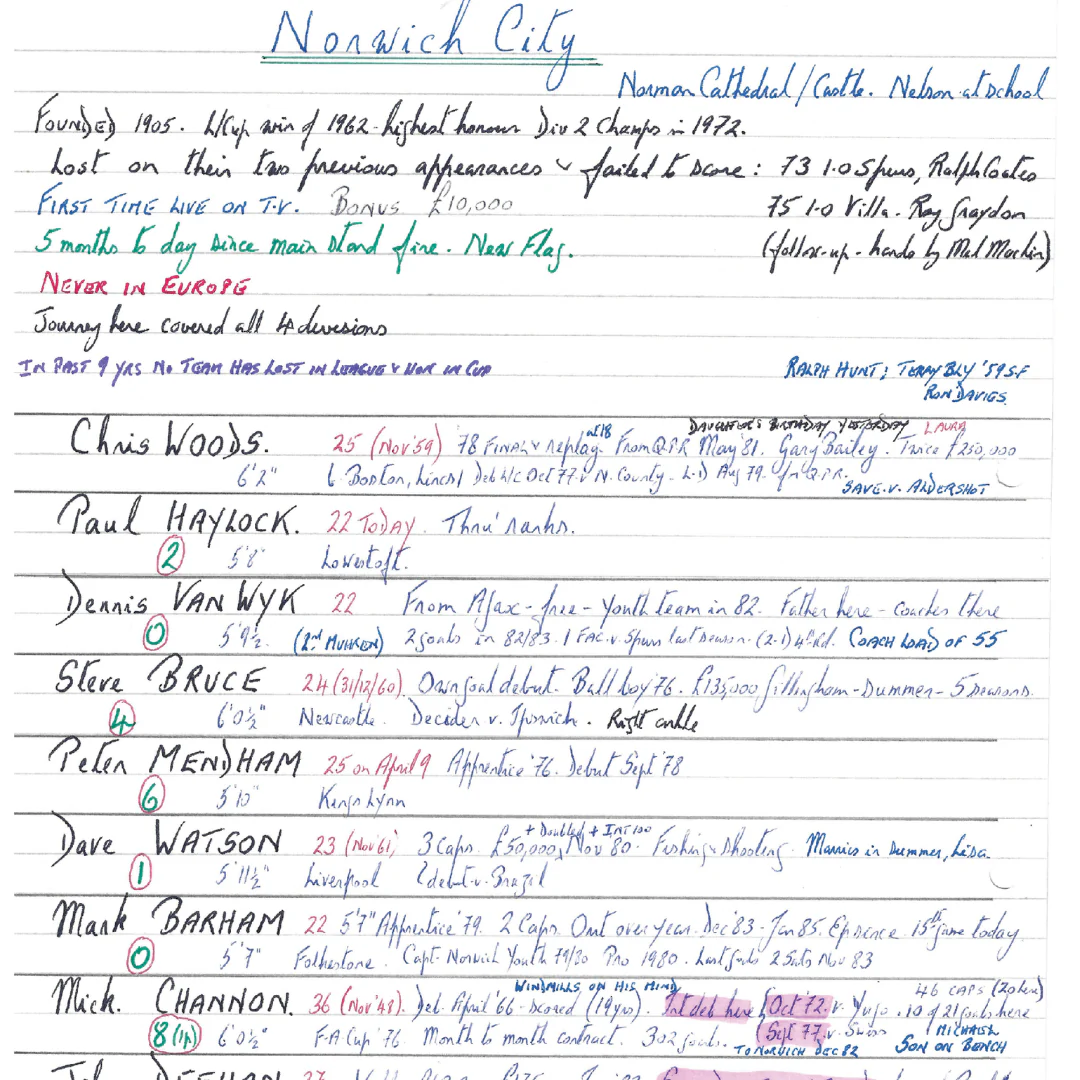 Norwich City
Norman Cathedral/Castle. Nelson at school
FOUNDED 1905. L/Cup win of 1962 - highest honour Div 2 Champs in 1972.
Lost on their two previous appearances & failed to score: 73 1.0 Spurs, Ralph Coates
FIRST TIME LIVE ON T.V. BONUS £10,000 75 1.0 Villa. Ray Graydon
5 months to day since main stand fire. New Flag. (follow-up - hands by Mel Machin)
NEVER IN EUROPE
Journey here covered all 4 divisions
IN PAST 9 YRS NO TEAM HAS LOST IN LEAGUE & WON IN CUP RALPH HUNT; TERRY BLY '59 S.F
RON DAVIES.
DAUGHTER'S BIRTHDAY YESTERDAY LAURA
Chris WOODS. 25 (Nov '59) '78 FINAL & replay at 18 From Q.P.R May '81. Gary Bailey. Twice £250,000
6'2" b. Boston, Lincs / Deb L/C Oct 77 v N. County. L.D Aug 79. for Q.P.R.
SAVE.v. ALDERSHOT
Paul HAYLOCK. 22 TODAY. Thru' ranks.
2 5'8" Lowestoft.
Dennis VAN WYK 22 From Ajax - free - Youth team in 82. Father here - coaches there
0 5'9½ (2nd MUHREN) 2 goals in 82/83. 1 FAC. v. Spurs last season. (2-1) 4th Rd. COACH LOAD OF 55
Steve BRUCE 24 (31/12/60). Own goal debut. Ball boy 76. £135,000 Gillingham - Summer - 5 seasons.
4 6'0½" Newcastle. Decider v. Ipswich. Right ankle
Peter MENDHAM 25 on April 9 Apprentice '76. Debut Sept '78
6 5'10" Kings Lynn
+ Doubled + INT 100
Dave WATSON 23 (Nov 61) 3 Caps. £50,000, Nov 80. Fishing & shooting. Marries in Summer, Lisa.
1 5'11½" Liverpool debut v. Brazil
Mark BARHAM 22 5'7" Apprentice '79. 2 Caps. Out over year. Dec 83 - Jan 85. 15th game today
0 5'7" Folkestone. Capt. Norwich Youth 79/80 Pro 1980. Last goals 2 Nov 83
WINDMILLS ON HIS MIND 46 CAPS
Mick. CHANNON. 36 (Nov '48). Deb. April '66 - scored (19yrs). Int deb here Oct '72. v. Yugo. 10 of 21 goals here
8 (1p) 6'0½" F.A Cup '76. Month to month contract. 302 goals. (Sept 77. v. Swiss MICHAEL
TO NORWICH DEC 82 SON ON BENCH